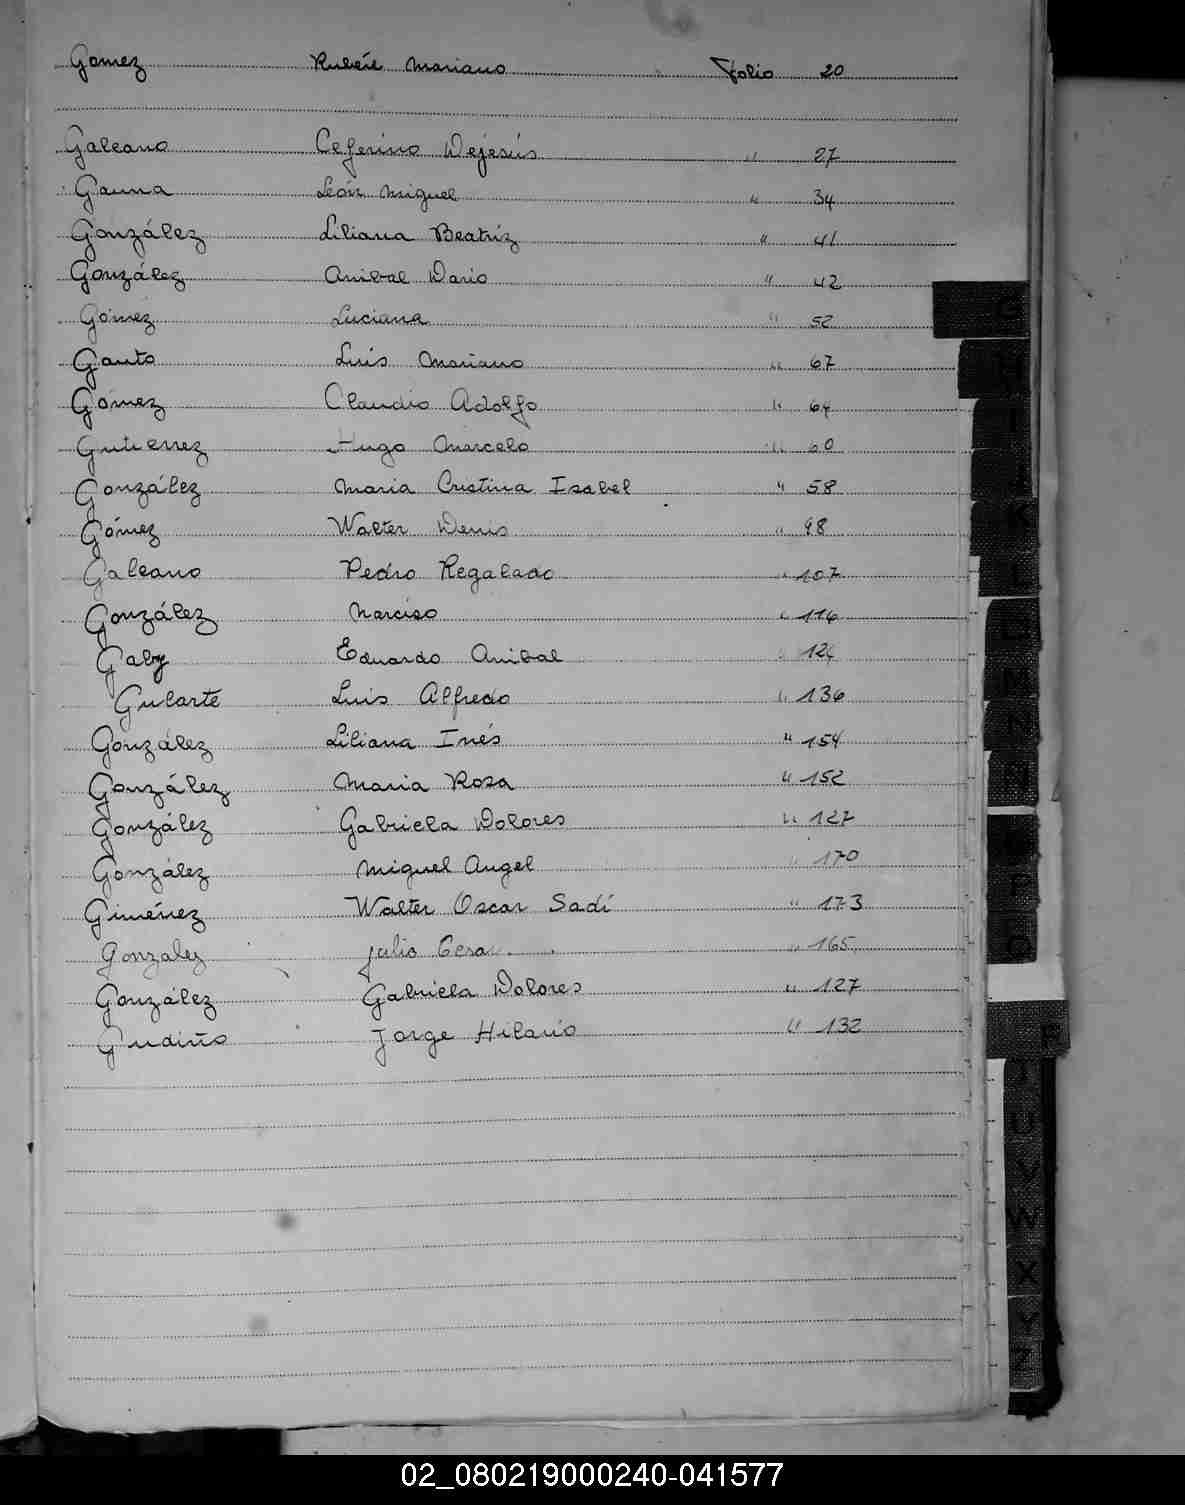 Gomez Rubén Mariano Folio 20
Galeano Ceferino Dejesús " 27
Gauna León Miguel " 34
González Liliana Beatriz " 41
González Anibal Dario " 42
Gómez Luciana " 52
Gauto Luis Mariano " 67
Gómez Claudio Adolfo " 64
Gutierrez Hugo Marcelo " 60
González Maria Cristina Isabel " 58
Gómez Walter Denis " 98
Galeano Pedro Regalado " 107
González Narciso " 116
Gaby Eduardo Anibal " 124
Gularte Luis Alfredo " 136
González Liliana Inés " 154
González Maria Rosa " 152
González Gabriela Dolores " 127
González Miguel Angel " 170
Giménez Walter Oscar Sadí " 173
Gonzalez Julio Cesar " 165
González Gabriela Dolores " 127
Gudiño Jorge Hilario " 132
G
H
I
J
K
L
M
N
Ñ
P
Q
R
T
U
V
W
X
Y
Z
02_080219000240-041577